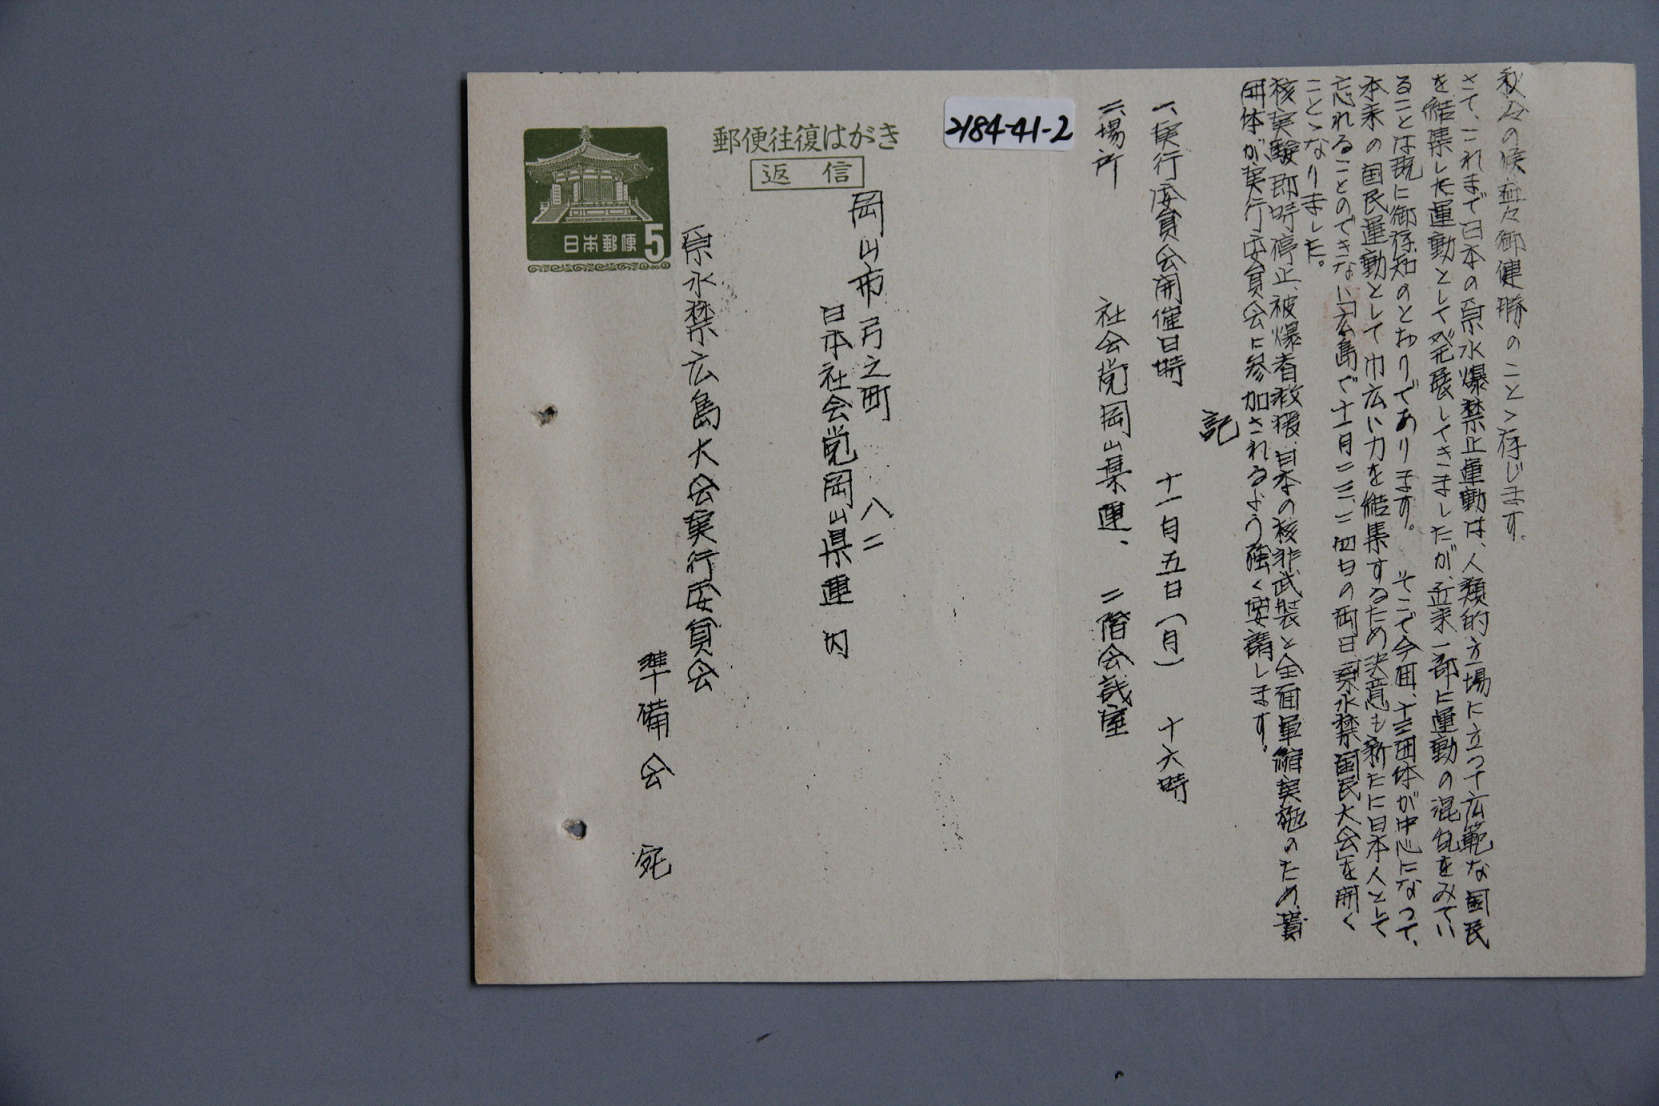 秋冷の候益々御健勝のこととゝ存じます。
さて、これまで日本の原水爆禁止運動は、人類的立場に立つて広範な国民
を結集した運動として発展してきましたが、近来一部に運動の混乱をみてい
ることは既に御存知のとおりであります。そこで今回、十三団体が中心になつて、
本来の国民運動として巾広い力を結集するため決意も新たに日本人として
忘れることのできない「広島で十一月二三、二四日の両日「原水禁国民大会」を開く
ことゝなりました。
核実験即時停止、被爆者救援、日本の核非武装と全面軍縮実施のため、貴
団体が実行委員会に参加されるよう強く要請します。
記
一、実行委員会開催日時 十一月五日(月) 十六時
二、場所 社会党岡山県連、二階会議室
2184-41-2
郵便往復はがき
返信
日本郵便 5
岡山市弓之町 八二
日本社会党岡山県連内
原水禁広島大会実行委員会
準備会 宛